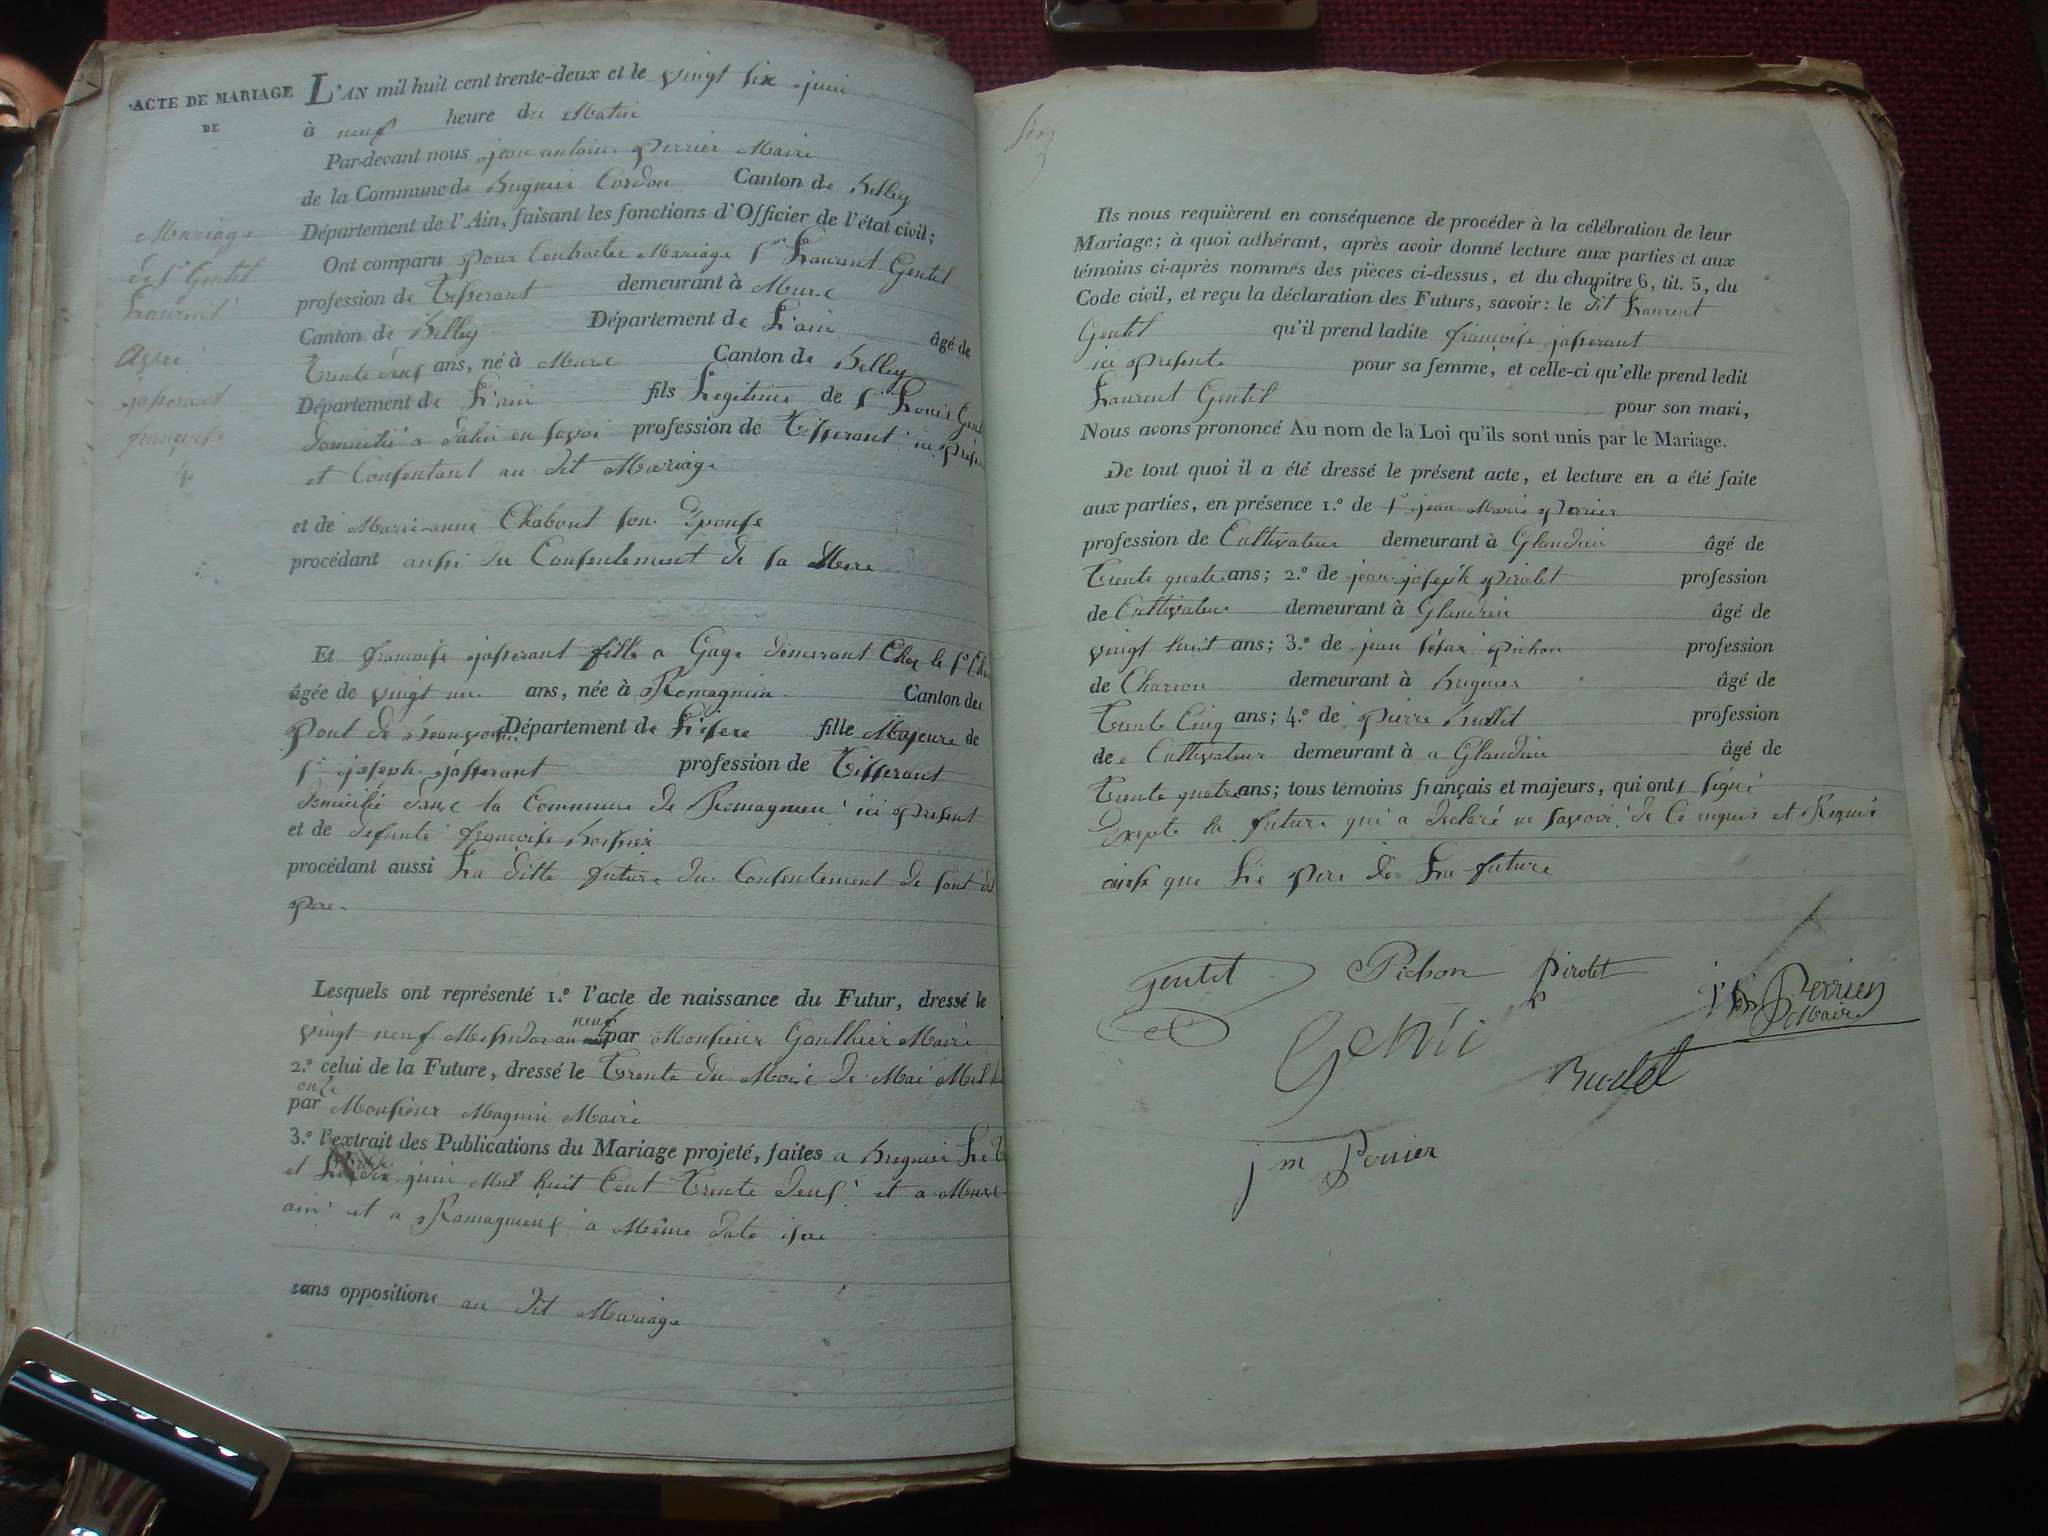 ACTE DE MARIAGE
DE
Mariage
de Sr Gentil
Laurent
Avec
josserant
françoise
L'AN mil huit cent trente-deux et le vingt six juin
à neuf heure du Matin
Par-devant nous jean antoine perrier Maire
de la Commune de Bregnier Cordon Canton de Belley
Département de l'Ain, faisant les fonctions d'Officier de l'état civil;
Ont comparu pour Contracter Mariage Sr Laurent Gentil
profession de Tisserant demeurant à Murs
Canton de Belley Département de L'ain âgé de
Trente deux ans, né à Murs Canton de Belley
Département de L'ain fils Legitime de Sr Louis
domicilié a en savoi profession de Tisserant ici
et Consentant au dit Mariage
et de Marie-anne Chabout son Epouse
procédant aussi du Consentement de sa Mere
Et françoise josserant fille a Gage demeurant Chez le Sr
âgée de vingt un ans, née à Romagnieu Canton de
pont de Beauvoisin Département de L'isere fille Majeure de
Sr joseph josserant profession de Tisserant
domicilié dans la Commune de Romagnieu ici present
et de defunte françoise
procédant aussi La ditte future du Consentement de sont dit
pere
Lesquels ont représenté 1.º l'acte de naissance du Futur, dressé le
vingt neuf Messidor an neuf par Monsieur Gaulthier Maire
2.º celui de la Future, dressé le Trente du Mois de Mai Mil
onze
par Monsieur Magnin Maire
3.º l'extrait des Publications du Mariage projeté, faites a Bregnier Le
et Le dix juin Mil huit Cent Trente deux et a Murs
ain et a Romagnieux a Même date
sans opposition au dit Mariage
Ils nous requièrent en conséquence de procéder à la célébration de leur
Mariage; à quoi adhérant, après avoir donné lecture aux parties et aux
témoins ci-après nommés des pièces ci-dessus, et du chapitre 6, tit. 5, du
Code civil, et reçu la déclaration des Futurs, savoir: le dit Laurent
Gentil qu'il prend ladite françoise josserant
ici presente pour sa femme, et celle-ci qu'elle prend ledit
Laurent Gentil pour son mari,
Nous avons prononcé Au nom de la Loi qu'ils sont unis par le Mariage.
De tout quoi il a été dressé le présent acte, et lecture en a été faite
aux parties, en présence 1.º de Sr jean Marie perrier
profession de Cultivateur demeurant à Glandieu âgé de
Trente quatre ans; 2.º de jean joseph pirolet profession
de Cultivateur demeurant à Glandieu âgé de
vingt huit ans; 3.º de jean pichon profession
de Charron demeurant à Bregnier âgé de
Trente Cinq ans; 4.º de pierre Budet profession
de Cultivateur demeurant à a Glandieu âgé de
Trente quatre ans; tous témoins français et majeurs, qui ont signé
Excepte la future qui a declaré ne savoir de Ce enquis et Requis
ainsi que Le pere de La future
gentil Pichon pirolet Perrier
Maire
Gentil
Budet
j m Perrier